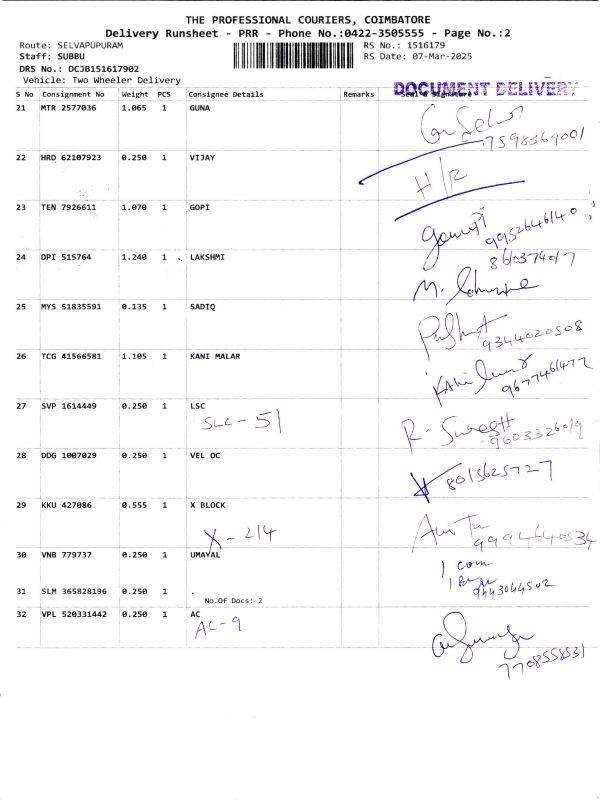 THE PROFESSIONAL COURIERS, COIMBATORE
Delivery Runsheet - PRR - Phone No.:0422-3505555 - Page No.:2
Route: SELVAPUPURAM
RS No.: 1516179
Staff: SUBBU
RS Date: 07-Mar-2025
DRS No.: DCJB151617902
Vehicle: Two Wheeler Delivery
DOCUMENT DELIVERY
S No Consignment No Weight PCS Consignee Details Remarks Seal & Signature
21 MTR 2577036 1.065 1 GUNA
7598369001
22 HRD 62107923 0.250 1 VIJAY
H/R
23 TEN 7926611 1.070 1 GOPI
9952646140
24 DPI 515764 1.240 1 LAKSHMI
8610374017
M.
25 MYS 51835591 0.135 1 SADIQ
9344020508
26 TCG 41566581 1.105 1 KANI MALAR
9677461477
27 SVP 1614449 0.250 1 LSC
SLC - 51
R. Suresh
9603326019
28 DDG 1007029 0.250 1 VEL OC
8015625727
29 KKU 427086 0.555 1 X BLOCK
X - 214
9994640534
30 VNB 779737 0.250 1 UMAYAL
1 com
31 SLM 365828196 0.250 1 .
No.Of Docs: 2
9443064502
32 VPL 520331442 0.250 1 AC
AC-9
7708558531